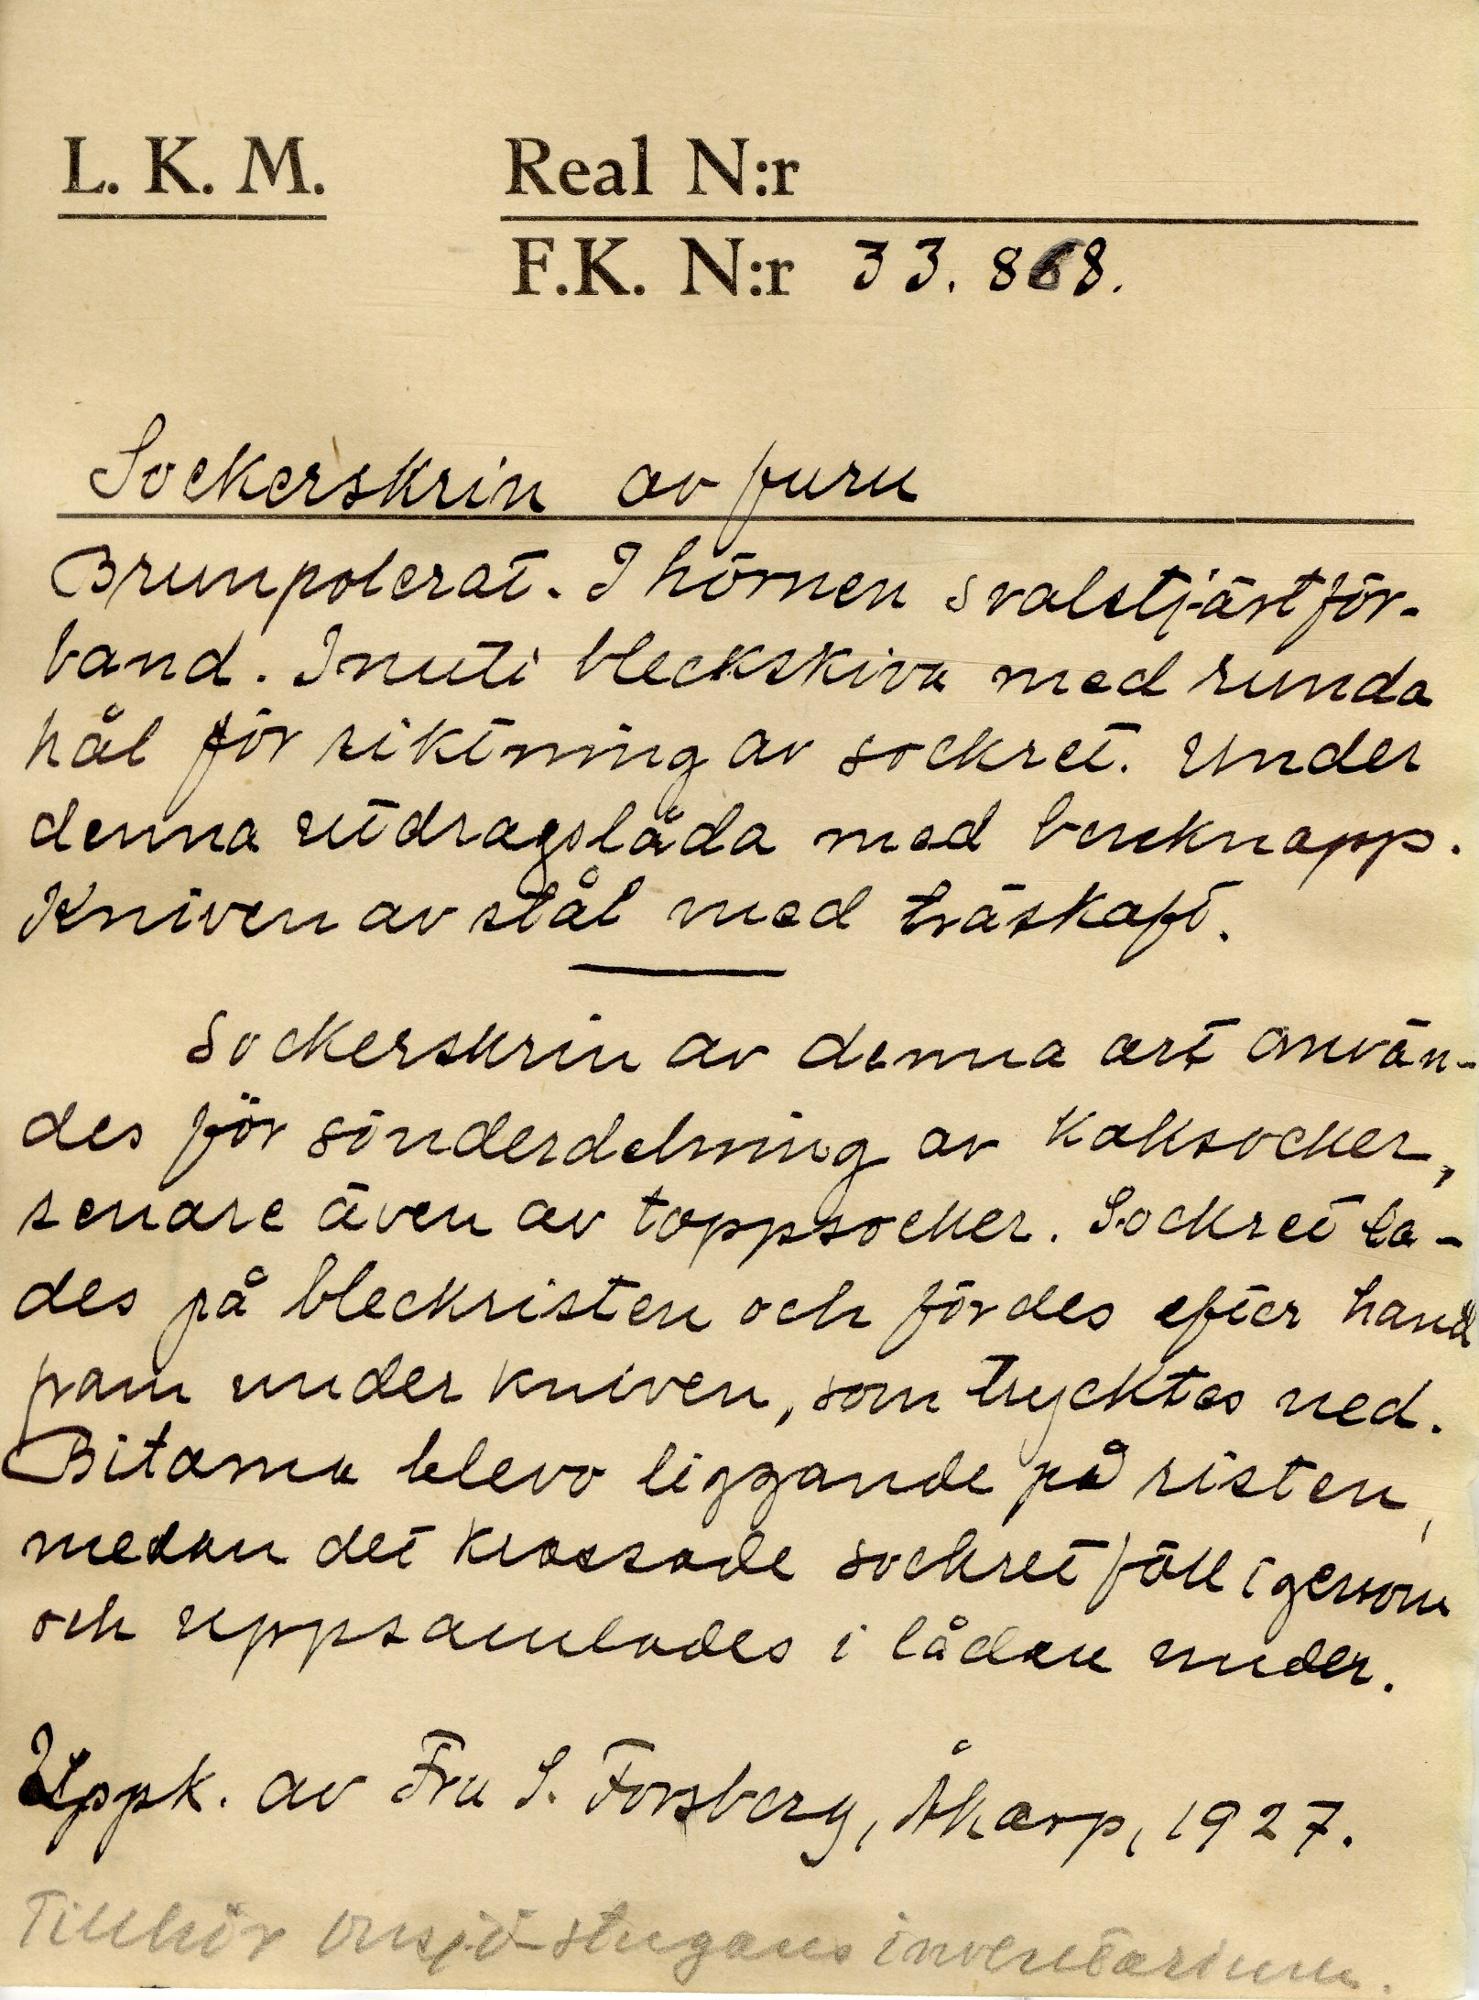 L. K. M. Real N:r
F.K. N:r 33.868.
Sockerskrin av furu
Brunpolerat. I hörnen svalstjärtför-
band. Inuti bleckskiva med runda
hål för siktning av sockret. Under
denna utdragslåda med benknapp.
Kniven av stål med träskaft.
Sockerskrin av denna art använ-
des för sönderdelning av kaksocker,
senare även av toppsocker. Sockret la-
des på bleckristen och fördes efter hand
fram under kniven, som trycktes ned.
Bitarna blevo liggande på risten,
medan det krossade sockret föll igenom
och uppsamlades i lådan under.
Uppk. av Fru S. Forsberg, Åkarp, 1927.
Tillhör Onsjöstugans inventarium.